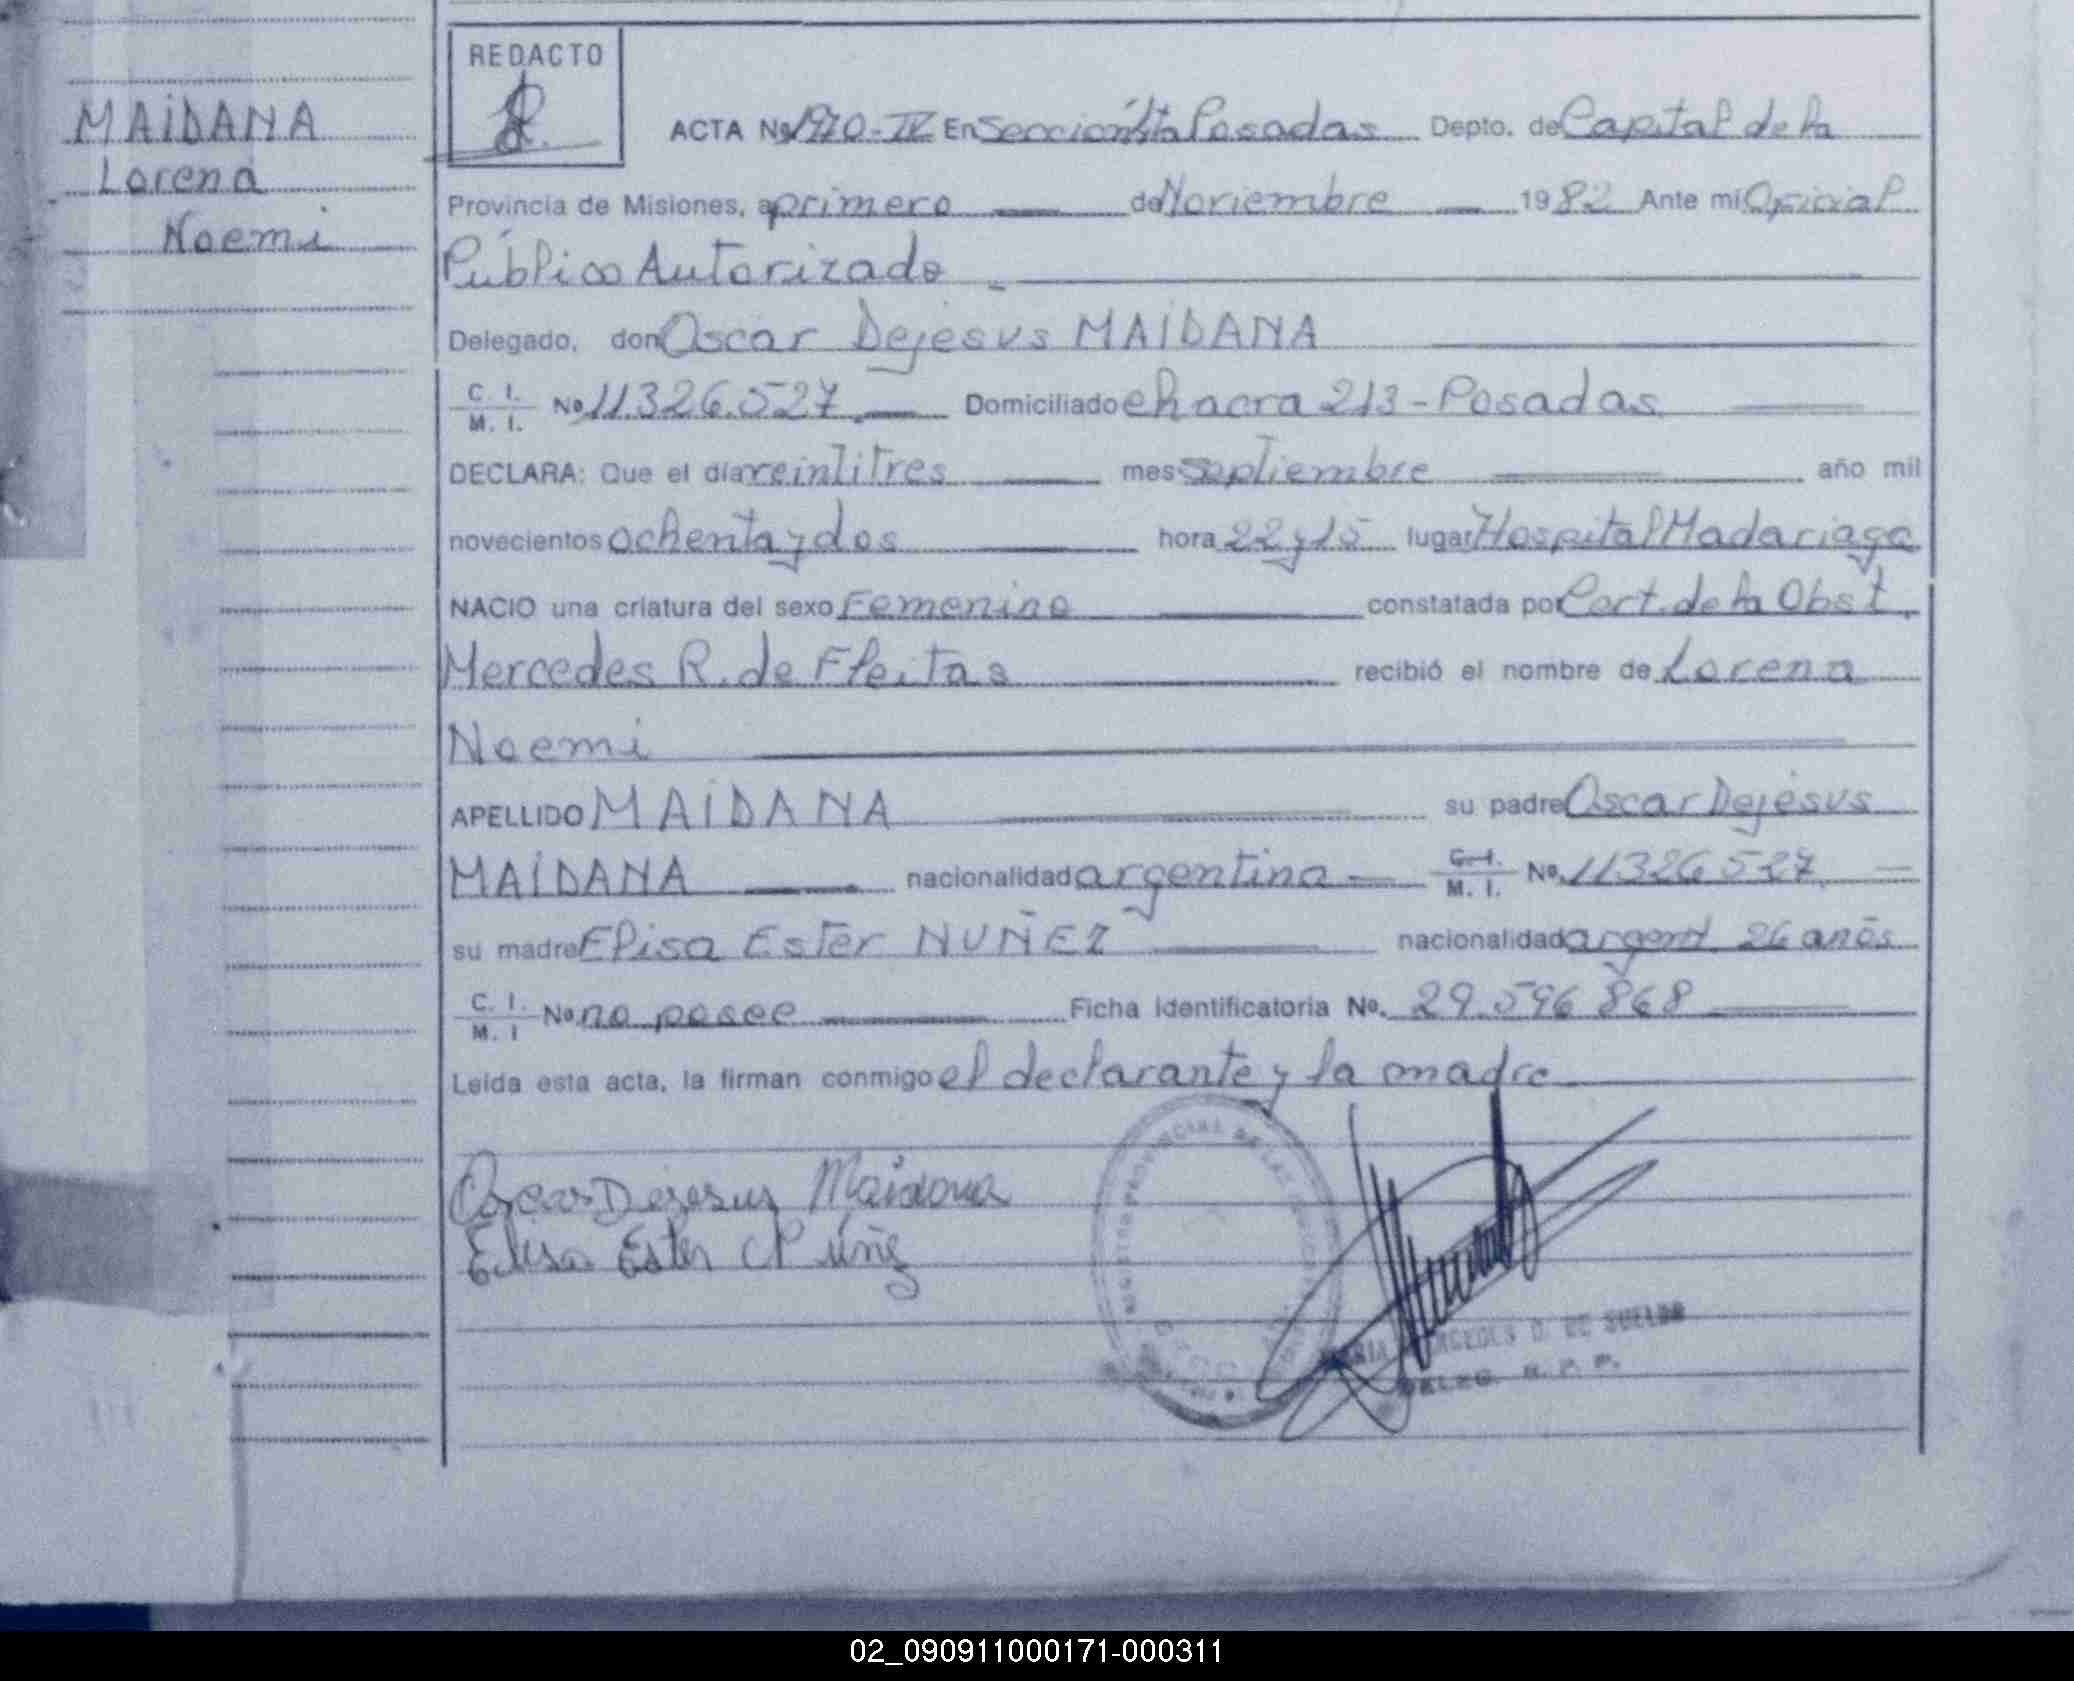 MAIDANA
Lorena
Noemi
REDACTO
ACTA No 1920-IV En Sección 1ta Posadas Depto. de Capital de la
Provincia de Misiones, a primero de Noviembre 1982 Ante mi Oficial
Público Autorizado
Delegado, don Oscar Dejesus MAIDANA
C. I. M. I. No 11.326.527 Domiciliado chacra 213-Posadas
DECLARA: Que el día veintitres mes septiembre año mil
novecientos ochenta y dos hora 22 y 15 lugar Hospital Madariaga
NACIO una criatura del sexo Femenino constatada por Cert. de la Obst.
Mercedes R. de Fleitas recibió el nombre de Lorena
Noemi
APELLIDO MAIDANA su padre Oscar Dejesus
MAIDANA nacionalidad argentina C.I. M. I. No. 11326527
su madre Elisa Ester NUÑEZ nacionalidad argent. 26 años
C. I. M. I No no posee Ficha identificatoria No. 29.596.868
Leída esta acta, la firman conmigo el declarante y la madre
Oscar Dejesus Maidana
Elisa Ester Núñez
MERCEDES D. DE SUELDO
DELEG. R. P. P.
02_090911000171-000311